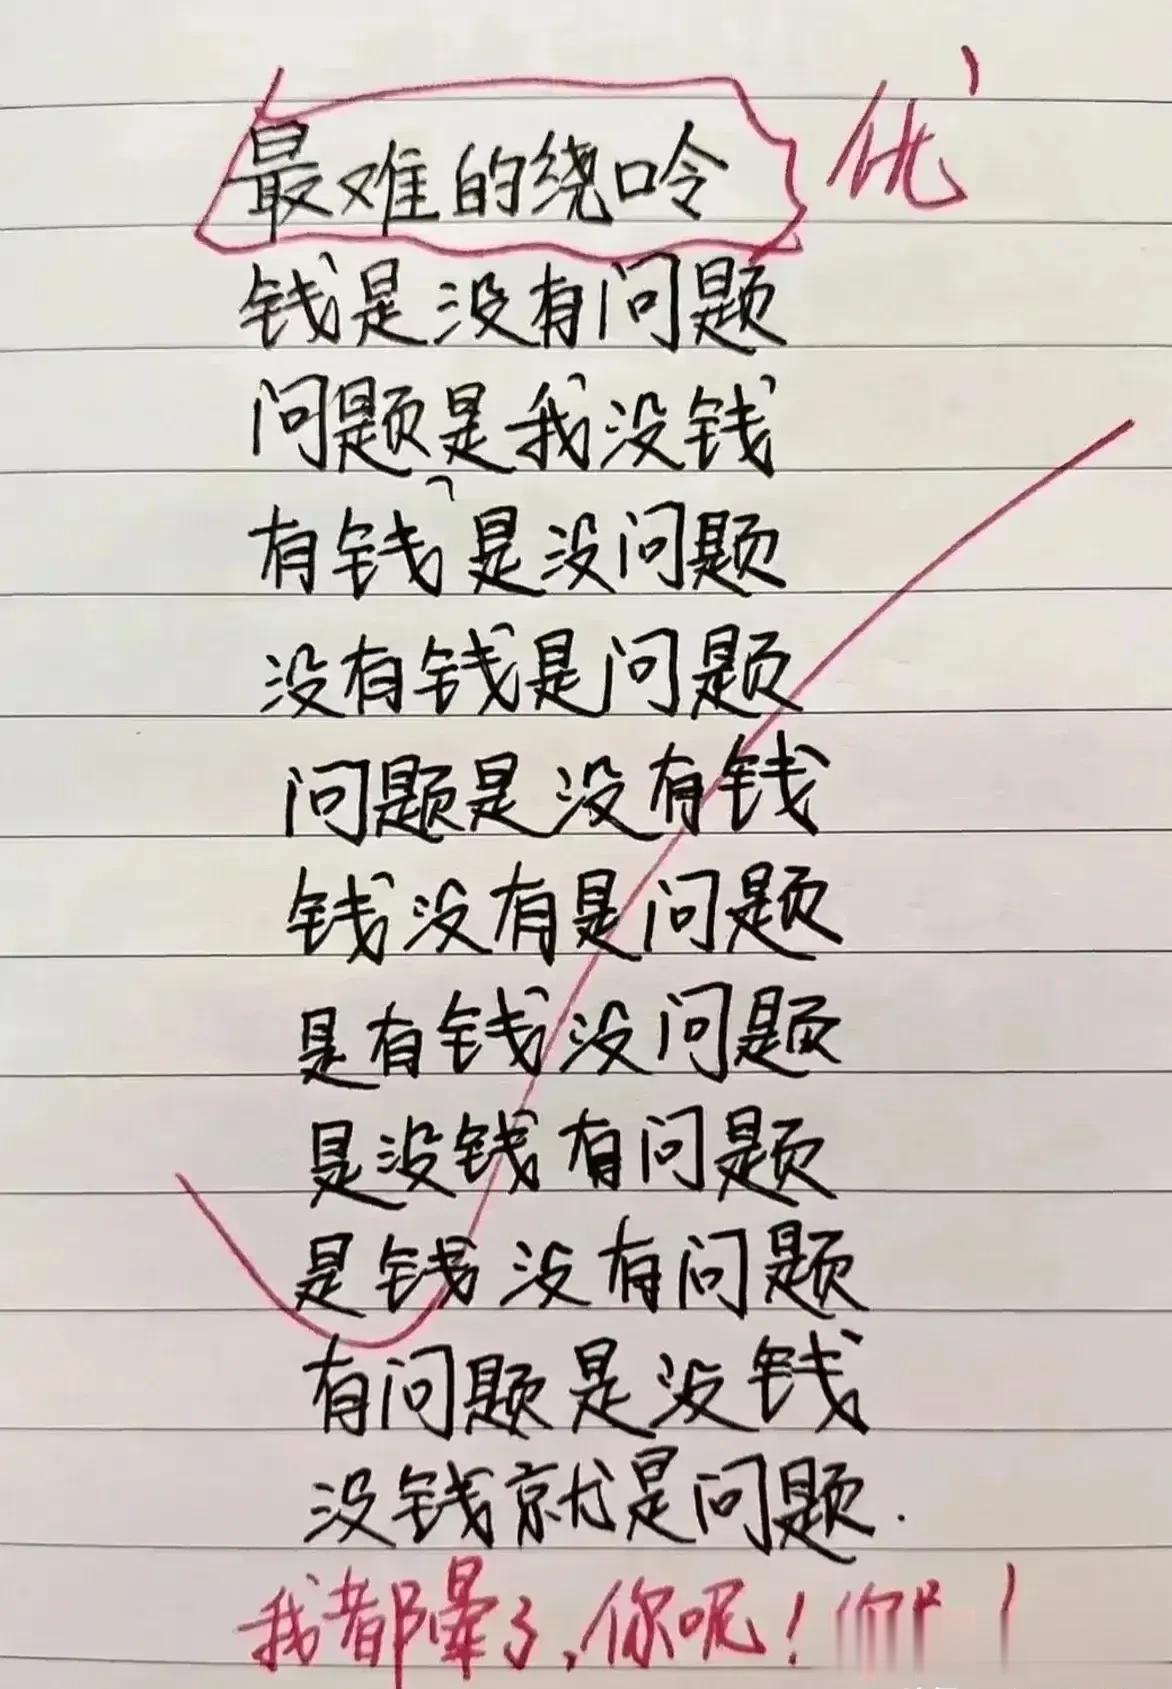 最难的绕口令 优
钱是没有问题
问题是我没钱
有钱是没问题
没有钱是问题
问题是没有钱
钱没有是问题
是有钱没问题
是没钱有问题
是钱没有问题
有问题是没钱
没钱就是问题.
我都晕了,你呢!